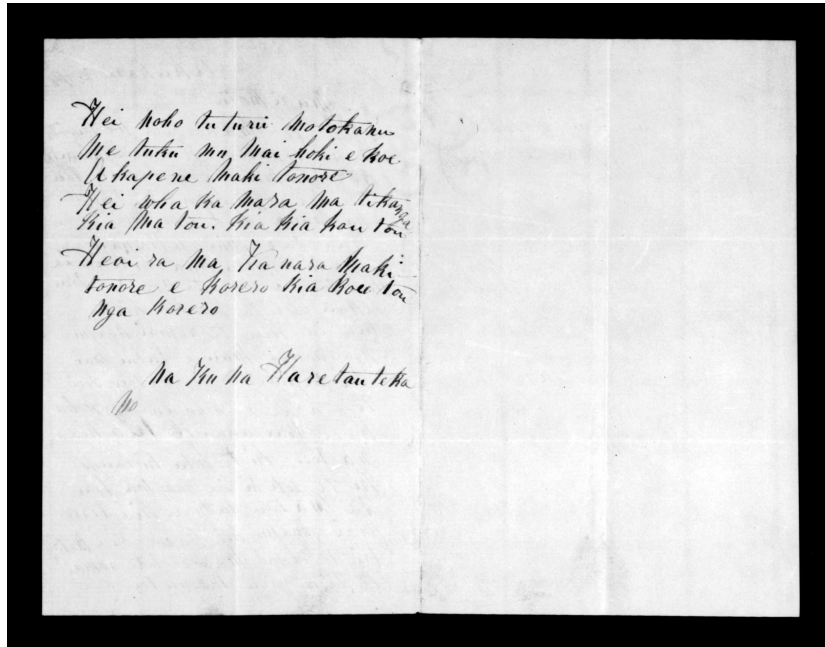 Hei noho tuturu motokanu
Me tuku mu mai hoki e koe
A kapene Maki tonore
Hei wha ka mara ma tikanga
Kia Ma tou. Kia kia kou tou
Heoi ra ma Kanara Maki
tonore e korero kia kou tou
nga korero
Na Ku na Haretauteka
No